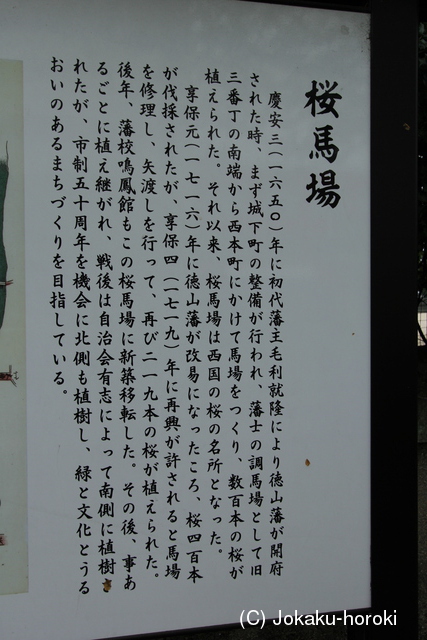 桜馬場
慶安三(一六五〇)年に初代藩主毛利就隆により徳山藩が開府
された時、まず城下町の整備が行われ、藩士の調馬場として旧
三番丁の南端から西本町にかけて馬場をつくり、数百本の桜が
植えられた。それ以来、桜馬場は西国の桜の名所となった。
享保元(一七一六)年に徳山藩が改易になったころ、桜四百本
が伐採されたが、享保四(一七一九)年に再興が許されると馬場
を修理し、矢渡しを行って、再び二一九本の桜が植えられた。
後年、藩校鳴鳳館もこの桜馬場に新築移転した。その後、事あ
るごとに植え継がれ、戦後は自治会有志によって南側に植樹
されたが、市制五十周年を機会に北側も植樹し、緑と文化とうる
おいのあるまちづくりを目指している。
(C) Jokaku-horoki